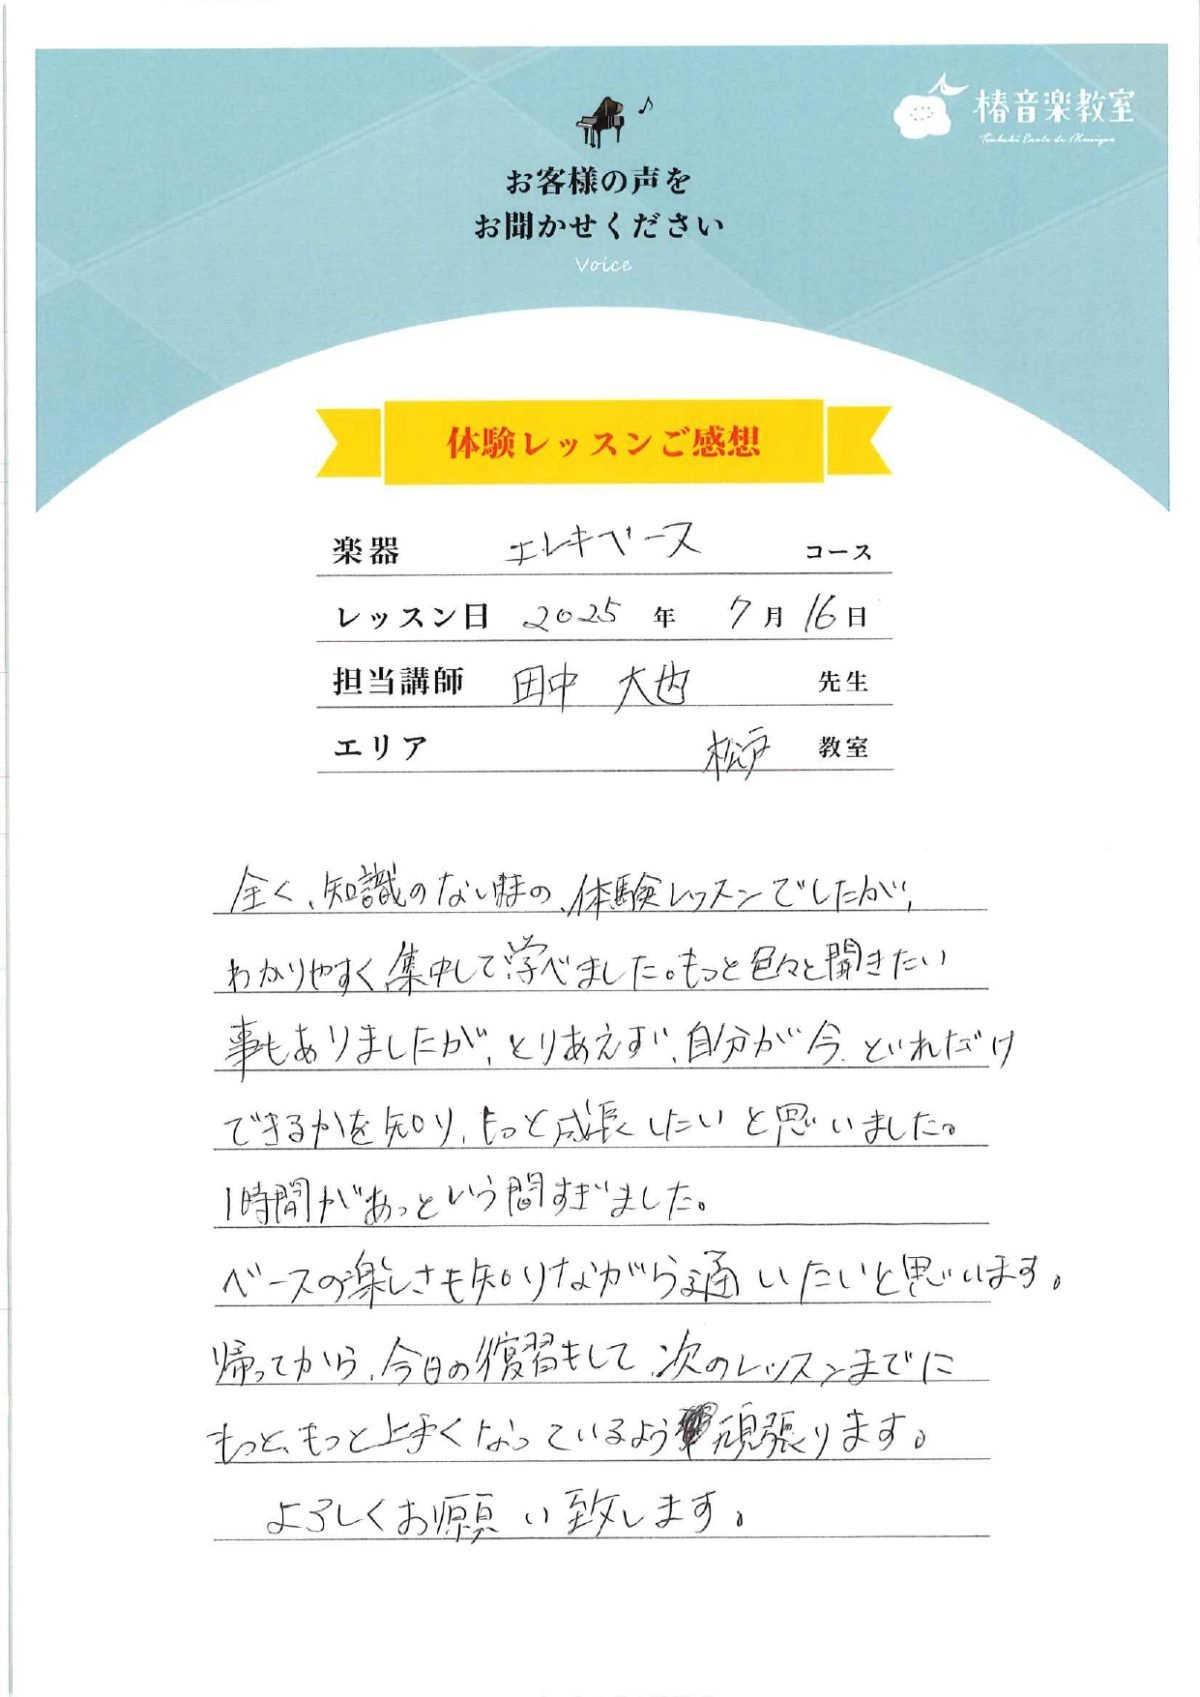 椿音楽教室
Tsubaki Ecole de Musique
お客様の声を
お聞かせください
Voice
体験レッスンご感想
楽器 エレキベース コース
レッスン日 2025 年 7 月 16 日
担当講師 田中 大 先生
エリア 松戸 教室
全く、知識のない時の、体験レッスンでしたが、
わかりやすく、集中して学べました。もっと色々と聞きたい
事もありましたが、とりあえず、自分が今、どれだけ
できるかを知り、もっと成長したいと思いました。
1時間があっという間すぎました。
ベースの楽しさも知りながら通いたいと思います。
帰ってから、今日の復習もして、次のレッスンまでに
もっと、もっと上手くなっているよう頑張ります。
よろしくお願い致します。